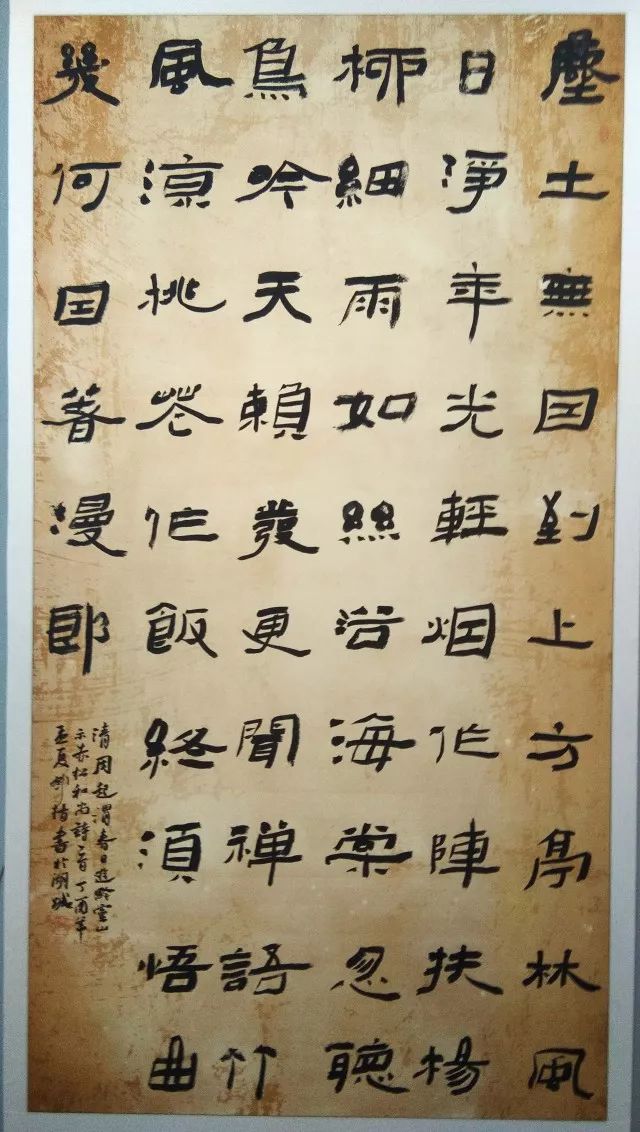 塵土無囙到上方亭林風
日淨年光輕烟作陣扶楊
柳細雨如絲浴海棠忽聽
鳥吟天賴發更聞禅語竹
風涼桃花作飯終須悟曲
幾何囙著漫郎
清周起渭春日遊黔靈山
示赤松和尚詩一首丁酉年
孟夏書於湖城